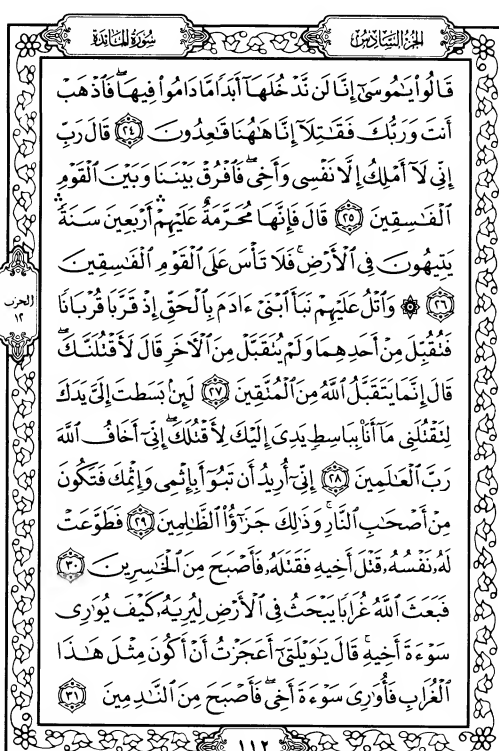 الجزء السادس
سورة المائدة
قَالُوا۟ يَٰمُوسَىٰٓ إِنَّا لَن نَّدْخُلَهَآ أَبَدًا مَّا دَامُوا۟ فِيهَا ۖ فَٱذْهَبْ
أَنتَ وَرَبُّكَ فَقَٰتِلَآ إِنَّا هَٰهُنَا قَٰعِدُونَ ٢٤ قَالَ رَبِّ
إِنِّى لَآ أَمْلِكُ إِلَّا نَفْسِى وَأَخِى ۖ فَٱفْرُقْ بَيْنَنَا وَبَيْنَ ٱلْقَوْمِ
ٱلْفَٰسِقِينَ ٢٥ قَالَ فَإِنَّهَا مُحَرَّمَةٌ ۛ عَلَيْهِمْ ۛ أَرْبَعِينَ سَنَةً ۛ
يَتِيهُونَ فِى ٱلْأَرْضِ ۚ فَلَا تَأْسَ عَلَى ٱلْقَوْمِ ٱلْفَٰسِقِينَ
٢٦ ۞ وَٱتْلُ عَلَيْهِمْ نَبَأَ ٱبْنَىْ ءَادَمَ بِٱلْحَقِّ إِذْ قَرَّبَا قُرْبَانًا
فَتُقُبِّلَ مِنْ أَحَدِهِمَا وَلَمْ يُتَقَبَّلْ مِنَ ٱلْءَاخَرِ قَالَ لَأَقْتُلَنَّكَ ۖ
قَالَ إِنَّمَا يَتَقَبَّلُ ٱللَّهُ مِنَ ٱلْمُتَّقِينَ ٢٧ لَئِنۢ بَسَطتَ إِلَىَّ يَدَكَ
لِتَقْتُلَنِى مَآ أَنَا۠ بِبَاسِطٍ يَدِىَ إِلَيْكَ لِأَقْتُلَكَ ۖ إِنِّىٓ أَخَافُ ٱللَّهَ
رَبَّ ٱلْعَٰلَمِينَ ٢٨ إِنِّىٓ أُرِيدُ أَن تَبُوٓأَ بِإِثْمِى وَإِثْمِكَ فَتَكُونَ
مِنْ أَصْحَٰبِ ٱلنَّارِ ۚ وَذَٰلِكَ جَزَٰٓؤُا۟ ٱلظَّٰلِمِينَ ٢٩ فَطَوَّعَتْ
لَهُۥ نَفْسُهُۥ قَتْلَ أَخِيهِ فَقَتَلَهُۥ فَأَصْبَحَ مِنَ ٱلْخَٰسِرِينَ ٣٠
فَبَعَثَ ٱللَّهُ غُرَابًا يَبْحَثُ فِى ٱلْأَرْضِ لِيُرِيَهُۥ كَيْفَ يُوَٰرِى
سَوْءَةَ أَخِيهِ ۚ قَالَ يَٰوَيْلَتَىٰٓ أَعَجَزْتُ أَنْ أَكُونَ مِثْلَ هَٰذَا
ٱلْغُرَابِ فَأُوَٰرِىَ سَوْءَةَ أَخِى ۖ فَأَصْبَحَ مِنَ ٱلنَّٰدِمِينَ ٣١
الحزب
١٢
١١٢